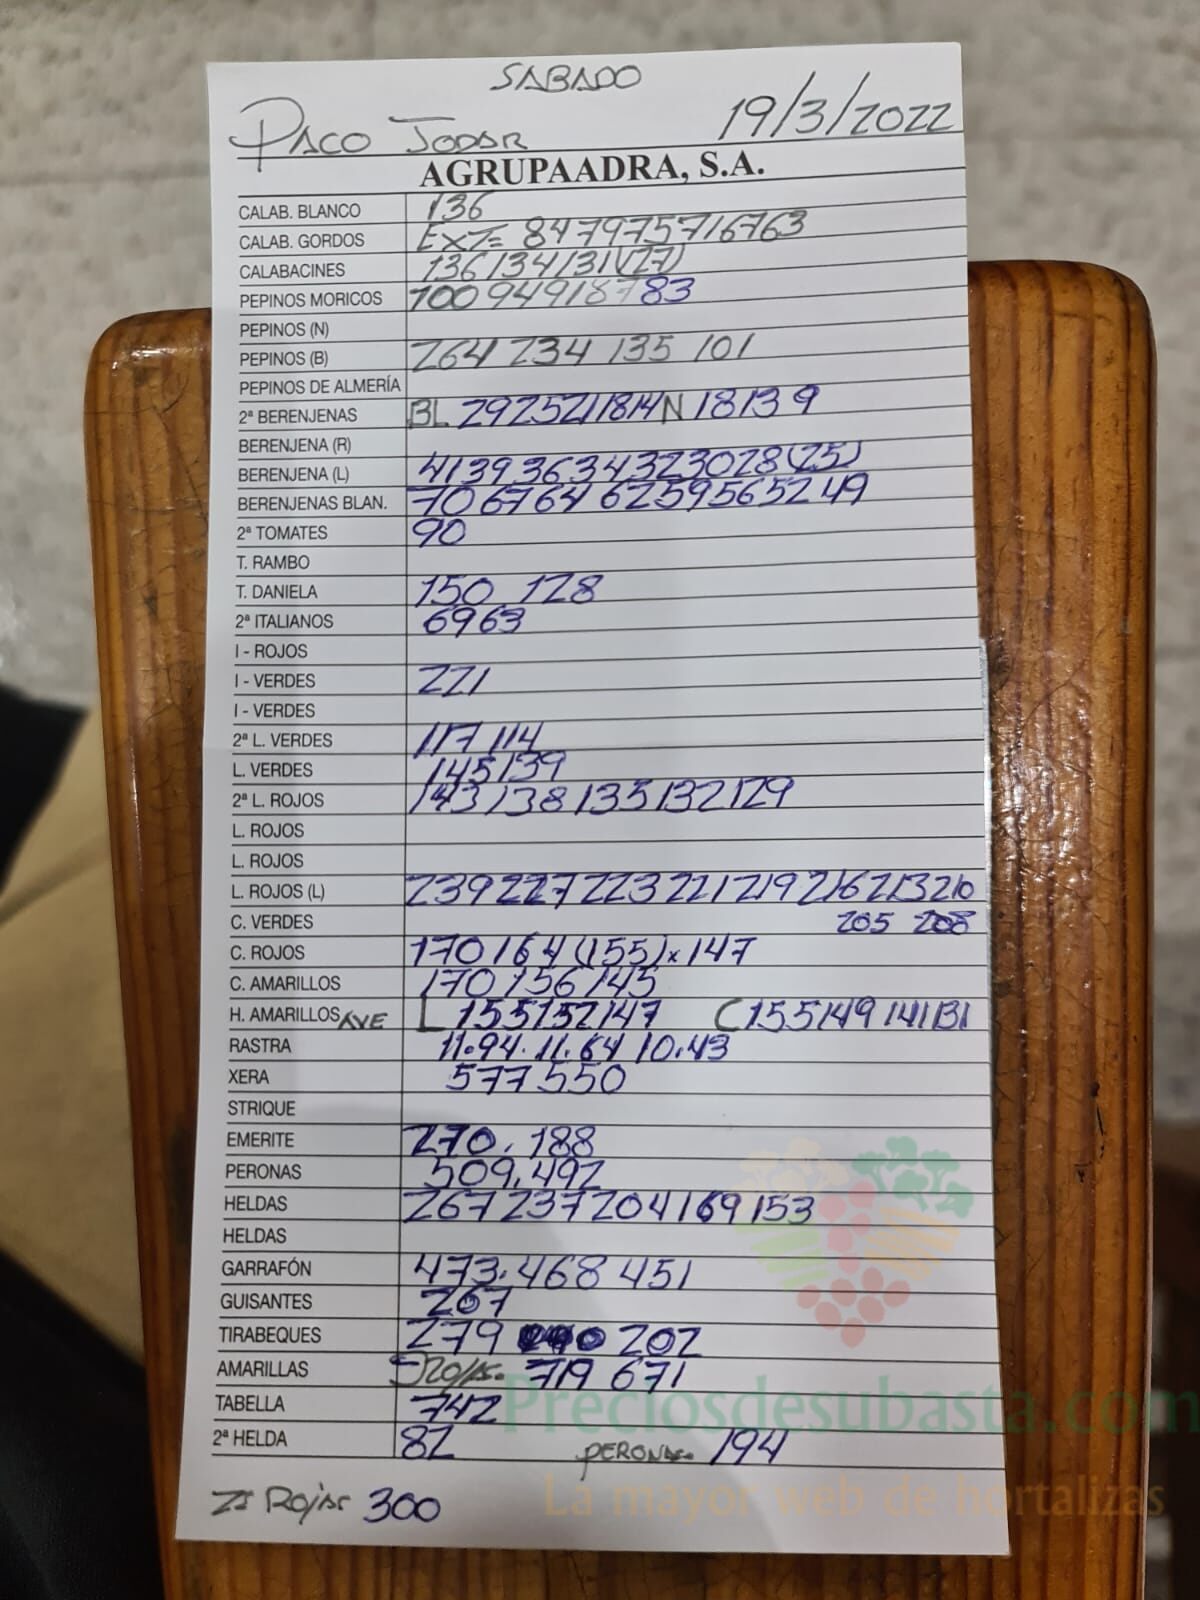 SABADO
PACO JODAR 19/3/2022
AGRUPAADRA, S.A.
CALAB. BLANCO 136
CALAB. GORDOS EXT= 84 79 75 71 67 63
CALABACINES 136 134 131 (127)
PEPINOS MORICOS 100 94 91 87 83
PEPINOS (N)
PEPINOS (B) 264 234 135 101
PEPINOS DE ALMERÍA
2ª BERENJENAS BL 29 25 21 18 14 N 18 13 9
BERENJENA (R)
BERENJENA (L) 41 39 36 34 32 30 28 (25)
BERENJENAS BLAN. 70 67 64 62 59 56 52 49
2ª TOMATES 90
T. RAMBO
T. DANIELA 150 128
2ª ITALIANOS 69 63
I - ROJOS
I - VERDES 221
I - VERDES
2ª L. VERDES 117 114
L. VERDES 145 139
2ª L. ROJOS 143 138 135 132 129
L. ROJOS
L. ROJOS
L. ROJOS (L) 239 227 223 221 219 216 213 210
C. VERDES 205 208
C. ROJOS 170 164 (155)x 147
C. AMARILLOS 170 156 145
H. AMARILLOS AVE L 155 152 147 C 155 149 141 131
RASTRA 11.94. 11.64 10.43
XERA 577 550
STRIQUE
EMERITE 270. 188
PERONAS 509. 492
HELDAS 267 237 204 169 153
HELDAS
GARRAFÓN 473. 468 451
GUISANTES 267
TIRABEQUES 279 202
AMARILLAS ROJAS. 719 671
TABELLA 742
2ª HELDA 82 PERONAS 194
2ª ROJAS 300
Preciosdesubasta.com
La mayor web de hortalizas